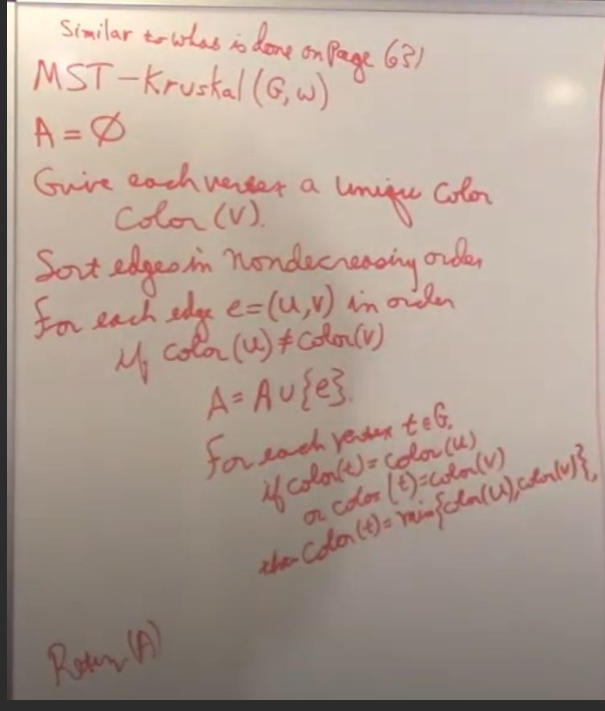 Similar to what is done on Page 631
MST-Kruskal (G, w)
A = ∅
Give each vertex a unique color
Color (v).
Sort edges in nondecreasing order
For each edge e=(u,v) in order
if color (u) ≠ color(v)
A = A ∪ {e}.
For each vertex t∈G,
if color(t) = color(u)
or color (t)=color(v)
then color(t) = min{color(u), color(v)},
Return (A)